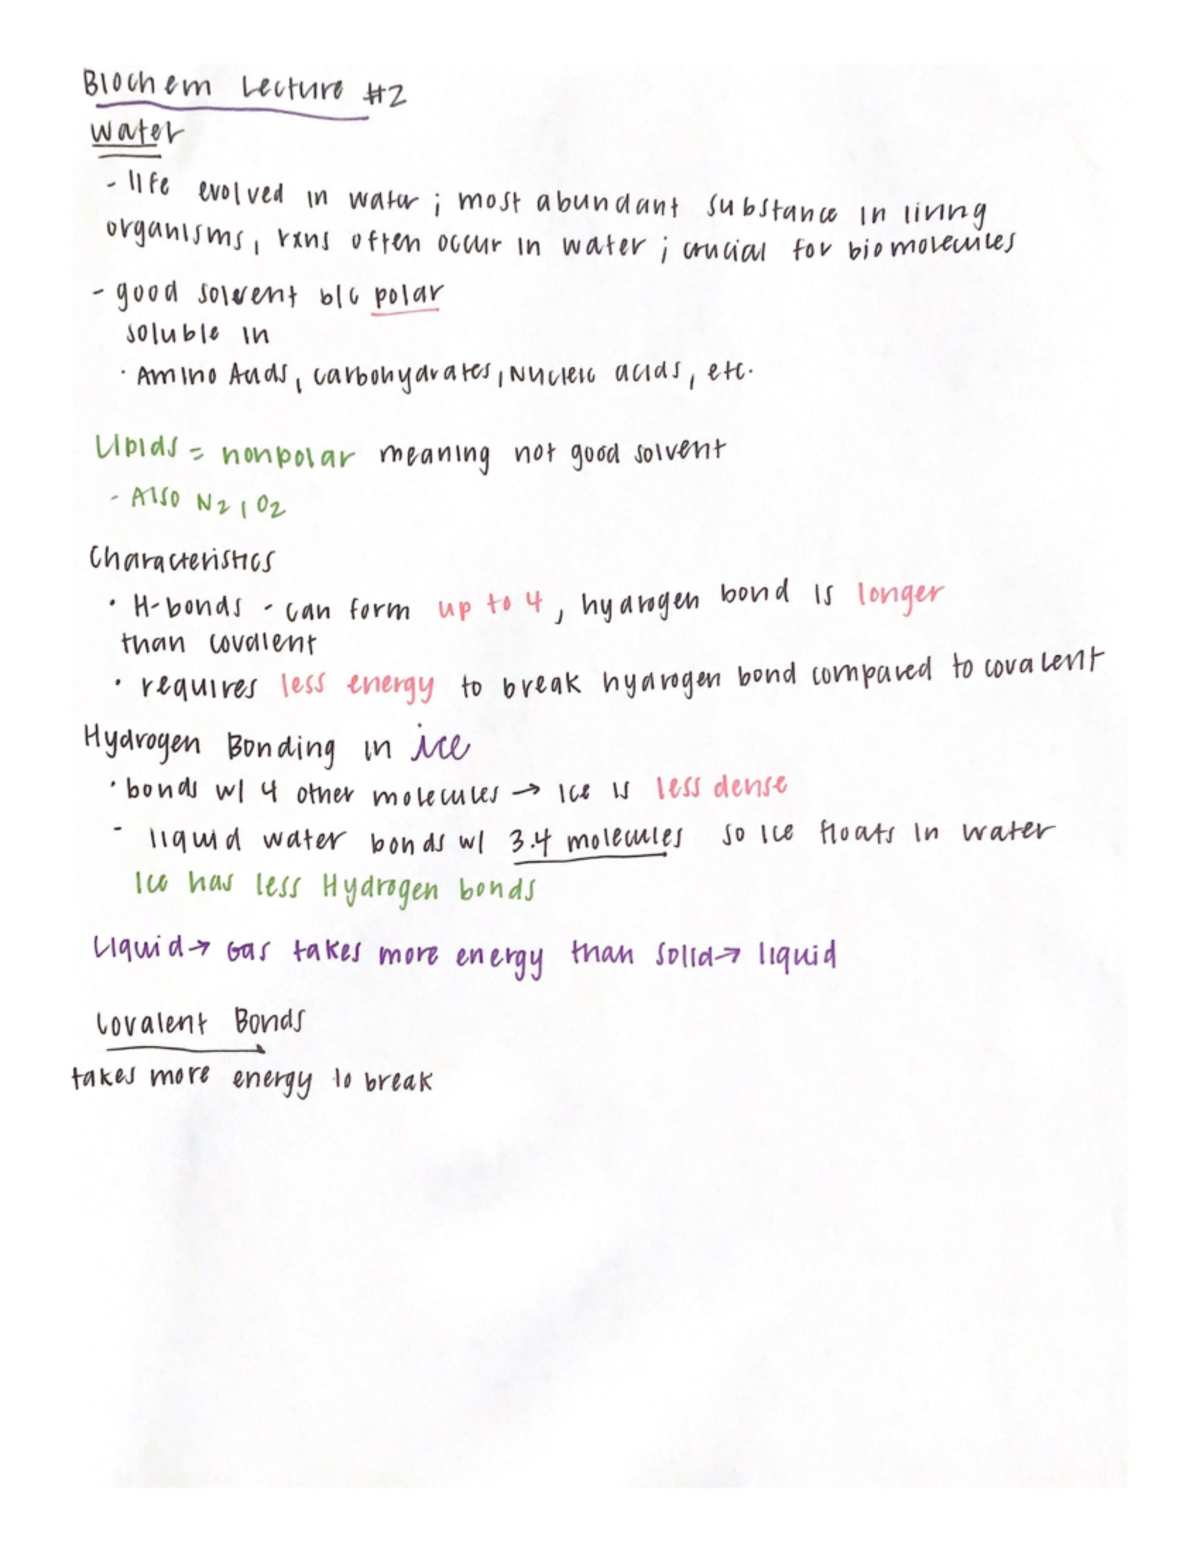 Biochem Lecture #2
Water
- life evolved in water ; most abundant substance in living
organisms, rxns often occur in water ; crucial for biomolecules
- good solvent b/c polar
soluble in
· Amino Acids, carbohydrates, Nucleic acids, etc.
Lipids = nonpolar meaning not good solvent
- Also N2, O2
Characteristics
· H-bonds - can form up to 4, hydrogen bond is longer
than covalent
· requires less energy to break hydrogen bond compared to covalent
Hydrogen Bonding in ice
· bonds w/ 4 other molecules → Ice is less dense
- liquid water bonds w/ 3.4 molecules so ice floats in water
Ice has less Hydrogen bonds
Liquid → Gas takes more energy than solid → liquid
Covalent Bonds
takes more energy to break